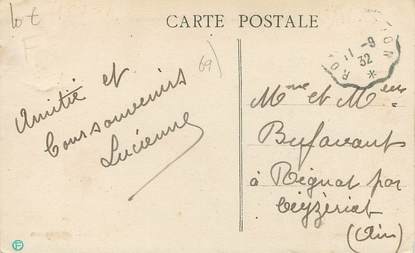 lot
CARTE POSTALE
F
69
11-9
32
Amitié et
bons souvenirs
Lucienne
Mme et Mrs
Bufavant
à Rignat par
Ceyzériat
(Ain)
F